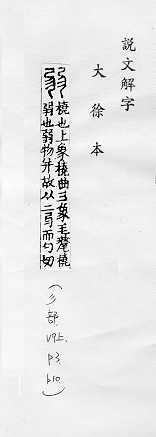 說文解字
大徐本
弱 橈也上象橈曲彡象毛氂橈
弱也弱物并故从二㢱而勺切
(彡部
V9上.
P3.
b10.)